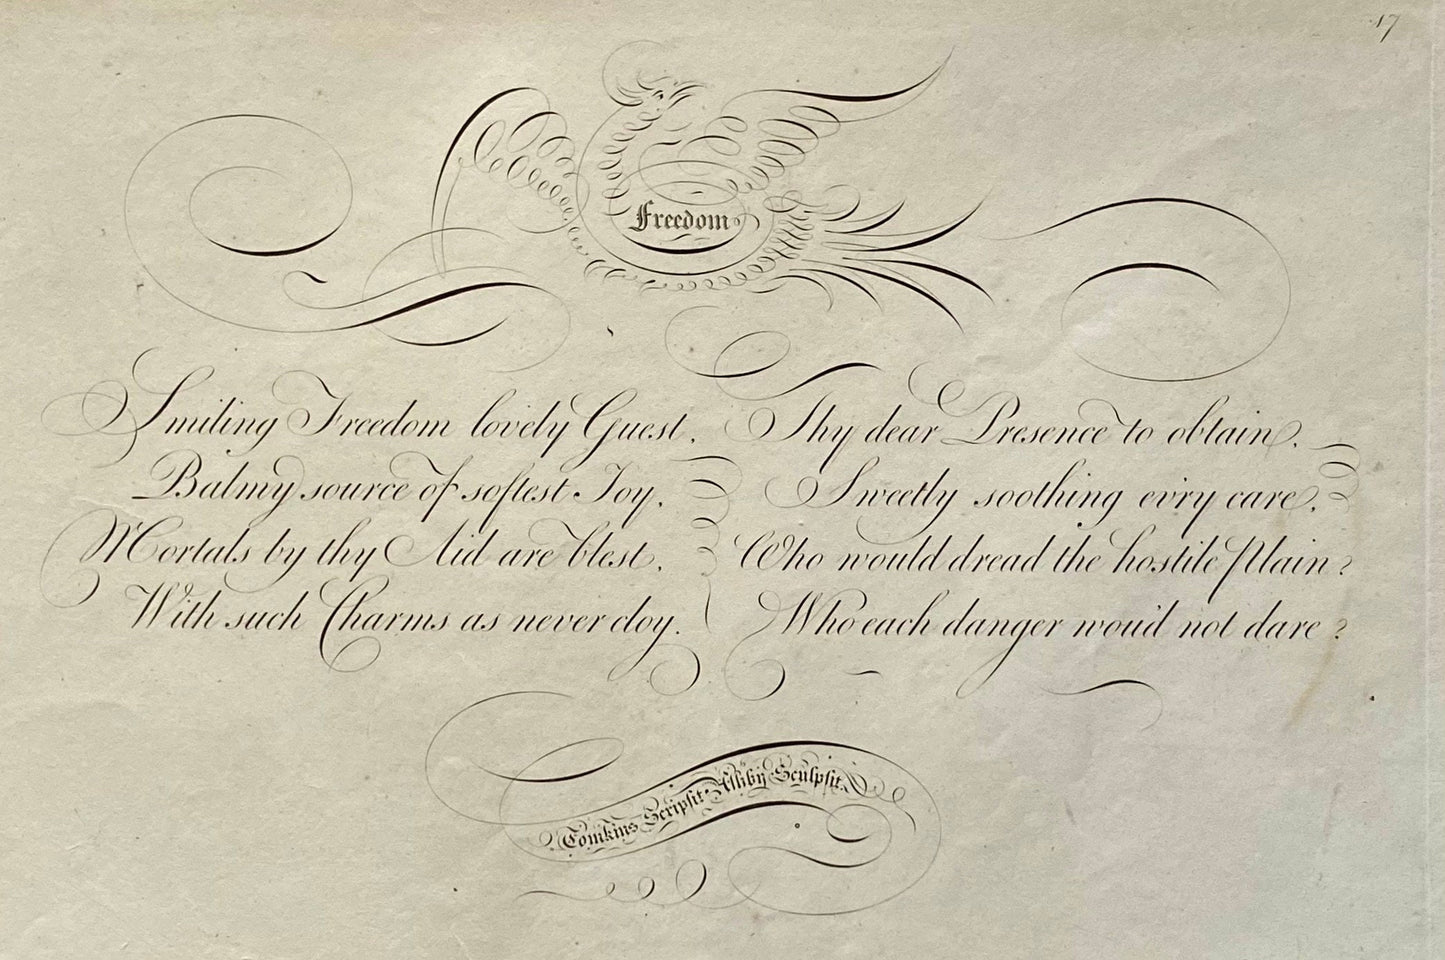 17
Freedom
Smiling Freedom lovely Guest,
Balmy source of softest Joy,
Mortals by thy Aid are blest,
With such Charms as never cloy.
Thy dear Presence to obtain,
Sweetly soothing ev'ry care,
Who would dread the hostile Plain?
Who each danger wou'd not dare?
Tomkins Scripsit. Ashby Sculpsit.